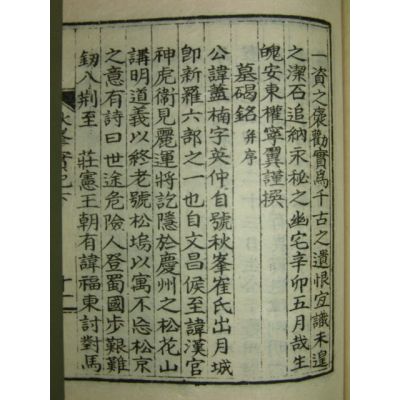 一資之褒勸實爲千古之遺恨宜識未遑
之潔石追納永秘之幽宅辛卯五月哉生
魄安東權寧翼謹撰
墓碣銘 幷序
公諱蓋楠字英仲自號秋峯崔氏出月城
卽新羅六部之一也自文昌侯至諱漢官
神虎衛見麗運將訖隱於慶州之松花山
講明道義以終老號松塢以寓不忘松京
之意有詩曰世途危險人登蜀國步艱難
釰八荆至 莊憲王朝有諱福東討對馬
秋峯實紀下 十二